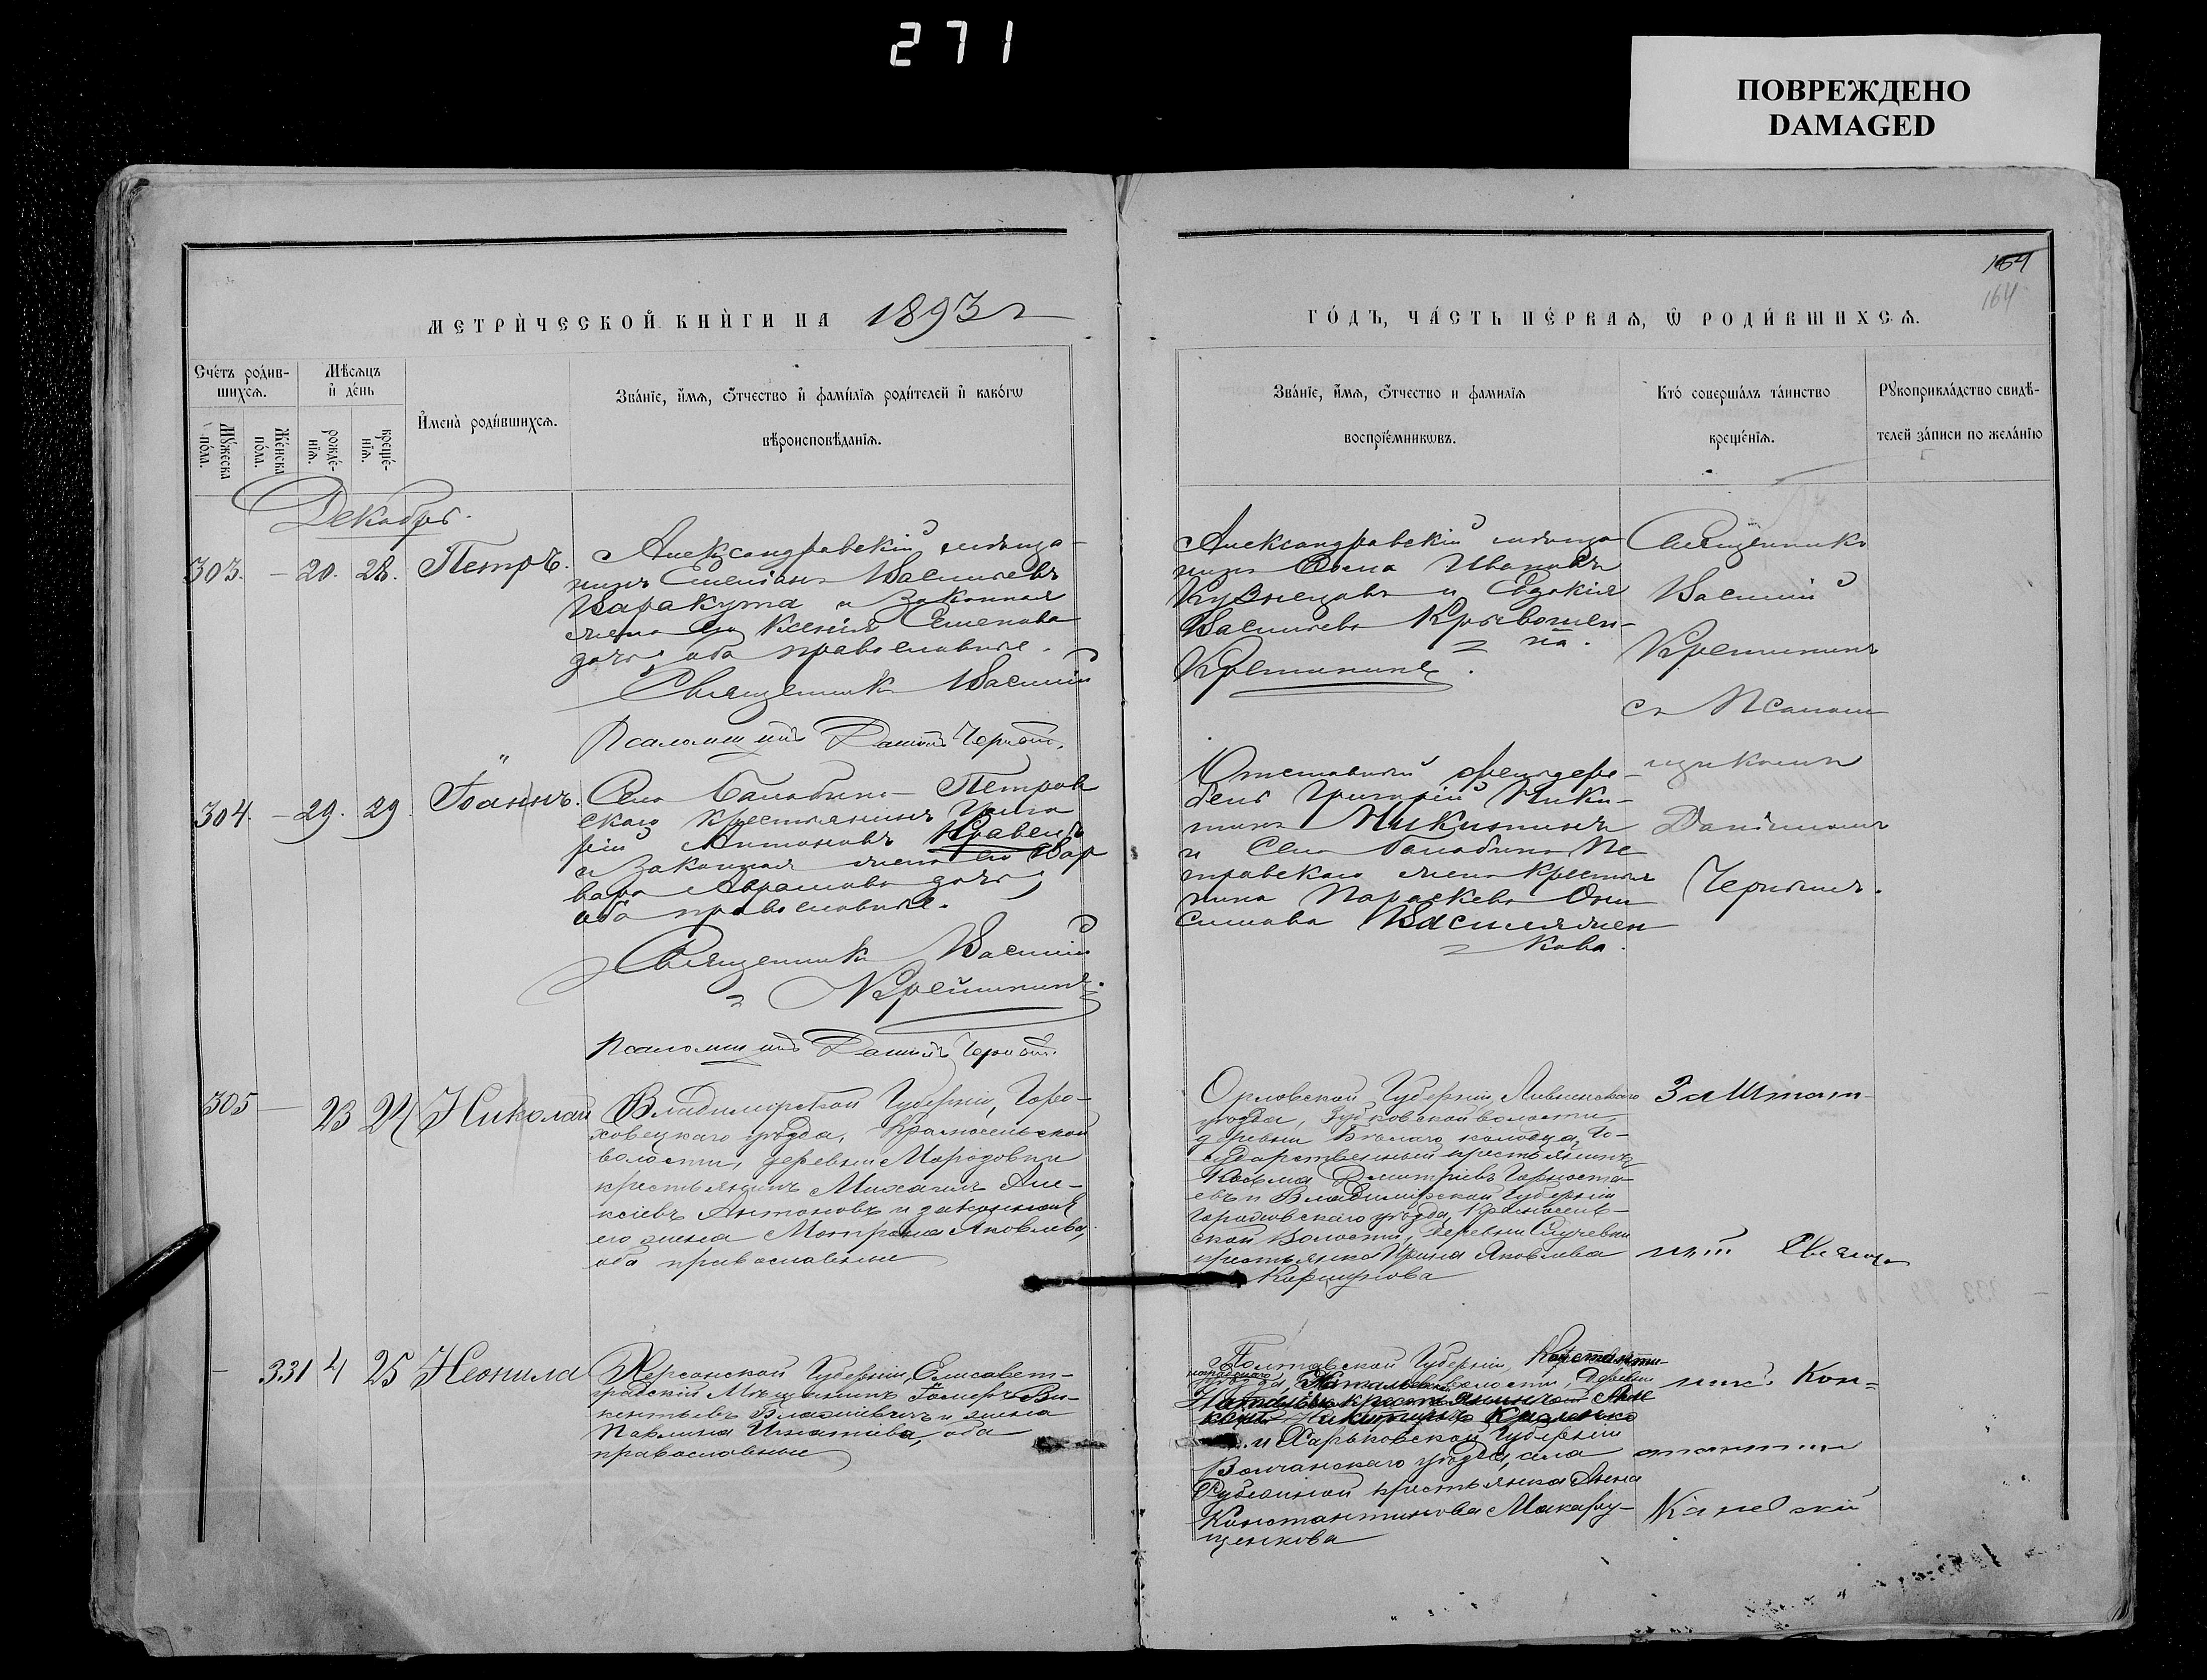 271
ПОВРЕЖДЕНО
DAMAGED
154
164
МЕТРИ́ЧЕСКОЙ КНИ́ГИ НА 1893 г
ГО́ДЪ, ЧА́СТЬ ПЕ́РВАѦ, Ѿ РОДИ́ВШИХСѦ.
Сче́тъ роди́в-
шихсѧ.
Мꙋ́жеска
по́ла.
Же́нска
по́ла.
Мѣ́сѧцъ
и҆ де́нь
рожде́-
нїѧ.
креще́-
нїѧ.
И҆мена̀ роди́вшихсѧ.
Зва́нїе, и҆́мѧ, ѻ҆́тчество и҆ фами́лїѧ роди́телей и҆ како́гѡ
вѣроисповѣ́данїѧ.
Зва́нїе, и҆́мѧ, ѻ҆́тчество и фами́лїѧ
воспрїе́мникѡвъ.
Кто́ соверша́лъ та́инство
креще́нїѧ.
Рꙋкоприкла́дство свидѣ́-
телей за́писи по жела́нїю
Декабрь.
303. — 20. 28. Петръ.
Александровскій мѣща-
нинъ Емеліанъ Васильевъ
Варакута и законная
жена его Ксенія Семенова
дочь, оба православные.
Священникъ Василій
Псаломщикъ Даніилъ
Александровскій мѣща-
нинъ Иванъ
Кузнецовъ и Евдокія
Васильева
Крешининъ.
Священникъ
Василій
Крешининъ
съ Псалом
щикомъ
Даніиломъ
304. — 29. 29. Іоаннъ.
Села Балабино-Петров
скаго крестьянинъ Григо
рій Антоновъ Кравецъ
и законная жена его Вар
вара Аврамова дочь,
оба православные.
Священникъ Василій
Крешининъ.
Псаломщикъ Даніилъ
Отставной фельдфе-
бель Григорій Ники-
тинъ Никитинъ
и Села Балабино Пе
тровскаго жена крестья
нина Параскева Они
симова Василяжен
кова.
305 — 23 24 Николай
Владимірской Губерніи, Горо-
ховецкаго уѣзда, Красносельской
волости, деревни Мородовки
крестьянинъ Михаилъ Але-
ксіевъ Антоновъ и законная
его жена Матрона Яковлева,
оба православные
Орловской Губерніи, Ливенскаго
уѣзда, Зубковской волости,
деревни Бѣлаго колодца, Го-
сударственный крестьянинъ
Козьма Димитріевъ Горноста-
евъ и Владимірской Губерніи
Гороховскаго уѣзда, Красносель-
ской Волости, деревни Случевки
крестьянка Ирина Яковлева
Коршунова
Заштат-
ный Священ
— 331 4 25 Неонила
Херсонской Губерніи, Елисавет-
градскій Мѣщанинъ Ви-
кентьевъ и жена
Павлина Игнатіева, оба
православные
Полтавской Губерніи, Константи-
ноградскаго
уѣзда, волости, Деревни
и Харьковской Губерніи
Волчанскаго уѣзда, села
Рубежной крестьянка Анна
Константинова Макару-
щенкова
никъ Кон=
стантинъ
Каневскій